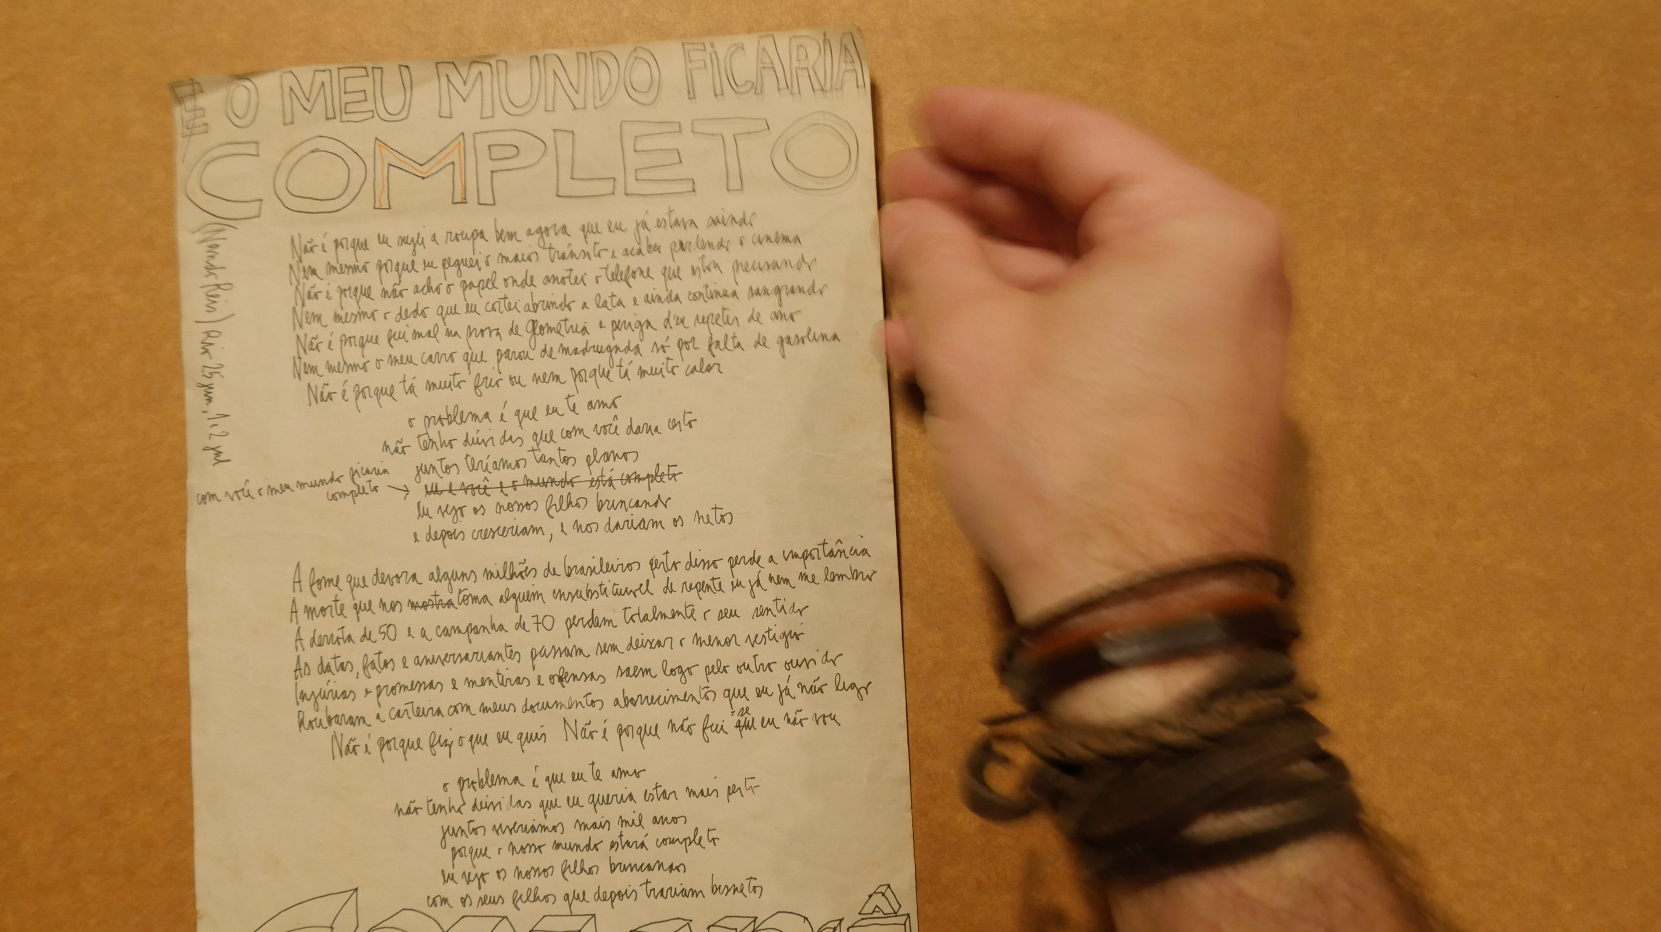 E O MEU MUNDO FICARIA
COMPLETO
(Nando Reis) Rio 25 jun, 1 e 2 jul
Não é porque eu sujei a roupa bem agora que eu já estava saindo
Nem mesmo porque eu peguei o maior trânsito e acabei perdendo o cinema
Não é porque não acho o papel onde anotei o telefone que estou precisando
Nem mesmo o dedo que eu cortei abrindo a lata e ainda continua sangrando
Não é porque fui mal na prova de Geometria e periga d'eu repetir de ano
Nem mesmo o meu carro que parou de madrugada só por falta de gasolina
Não é porque tá muito frio ou nem porque tá muito calor
o problema é que eu te amo
não tenho dúvidas que com você daria certo
juntos teríamos tantos planos
com você o meu mundo ficaria
completo →
eu e você e o mundo está completo
eu vejo os nossos filhos brincando
e depois cresceriam, e nos dariam os netos
A fome que devora alguns milhões de brasileiros perto disso perde a importância
A morte que nos mostra toma alguém insubstituível de repente eu já nem me lembro
A derrota de 50 e a campanha de 70 perdem totalmente o seu sentido
As datas, fatos e aniversariantes passam sem deixar o menor vestígio
Injúrias e promessas e mentiras e ofensas saem logo pelo outro ouvido
Roubaram a carteira com meus documentos aborrecimentos que eu já não ligo
Não é porque fiz o que eu quis Não é porque não fui que se eu não vou
o problema é que eu te amo
não tenho dúvidas que eu queria estar mais perto
juntos viveríamos mais mil anos
porque o nosso mundo estará completo
eu vejo os nossos filhos brincando
com os seus filhos que depois trariam bisnetos